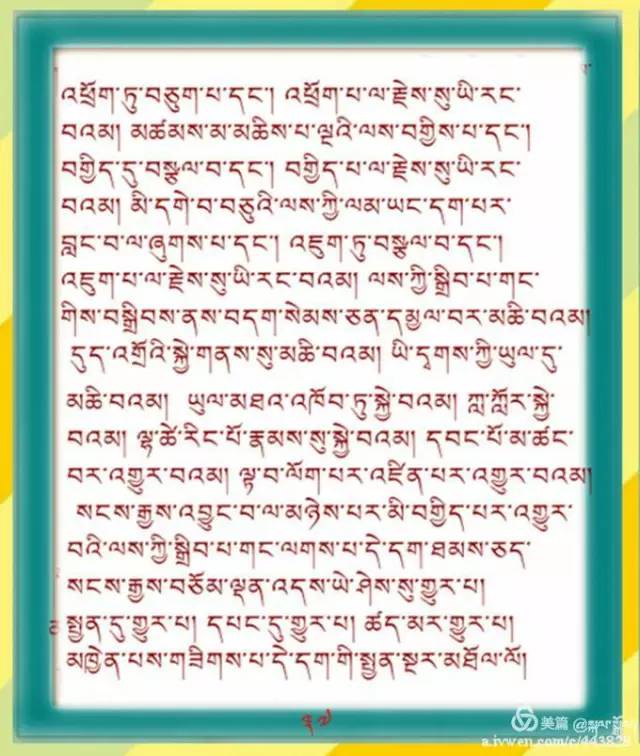 འཕྲོག་ཏུ་བཅུག་པ་དང་། འཕྲོག་པ་ལ་རྗེས་སུ་ཡི་རང་
བའམ། མཚམས་མ་མཆིས་པ་ལྔའི་ལས་བགྱིས་པ་དང་།
བགྱིད་དུ་བསྩལ་བ་དང་། བགྱིད་པ་ལ་རྗེས་སུ་ཡི་རང་
བའམ། མི་དགེ་བ་བཅུའི་ལས་ཀྱི་ལམ་ཡང་དག་པར་
བླང་བ་ལ་ཞུགས་པ་དང་། འཇུག་ཏུ་བསྩལ་བ་དང་།
འཇུག་པ་ལ་རྗེས་སུ་ཡི་རང་བའམ། ལས་ཀྱི་སྒྲིབ་པ་གང་
གིས་བསྒྲིབས་ནས་བདག་སེམས་ཅན་དམྱལ་བར་མཆི་བའམ།
དུད་འགྲོའི་སྐྱེ་གནས་སུ་མཆི་བའམ། ཡི་དྭགས་ཀྱི་ཡུལ་དུ་
མཆི་བའམ། ཡུལ་མཐའ་འཁོབ་ཏུ་སྐྱེ་བའམ། ཀླ་ཀློར་སྐྱེ་
བའམ། ལྷ་ཚེ་རིང་པོ་རྣམས་སུ་སྐྱེ་བའམ། དབང་པོ་མ་ཚང་
བར་འགྱུར་བའམ། ལྟ་བ་ལོག་པར་འཛིན་པར་འགྱུར་བའམ།
སངས་རྒྱས་འབྱུང་བ་ལ་མཉེས་པར་མི་བགྱིད་པར་འགྱུར་
བའི་ལས་ཀྱི་སྒྲིབ་པ་གང་ལགས་པ་དེ་དག་ཐམས་ཅད་
སངས་རྒྱས་བཅོམ་ལྡན་འདས་ཡེ་ཤེས་སུ་གྱུར་པ།
སྤྱན་དུ་གྱུར་པ། དཔང་དུ་གྱུར་པ། ཚད་མར་གྱུར་པ།
མཁྱེན་པས་གཟིགས་པ་དེ་དག་གི་སྤྱན་སྔར་མཐོལ་ལོ།
美篇